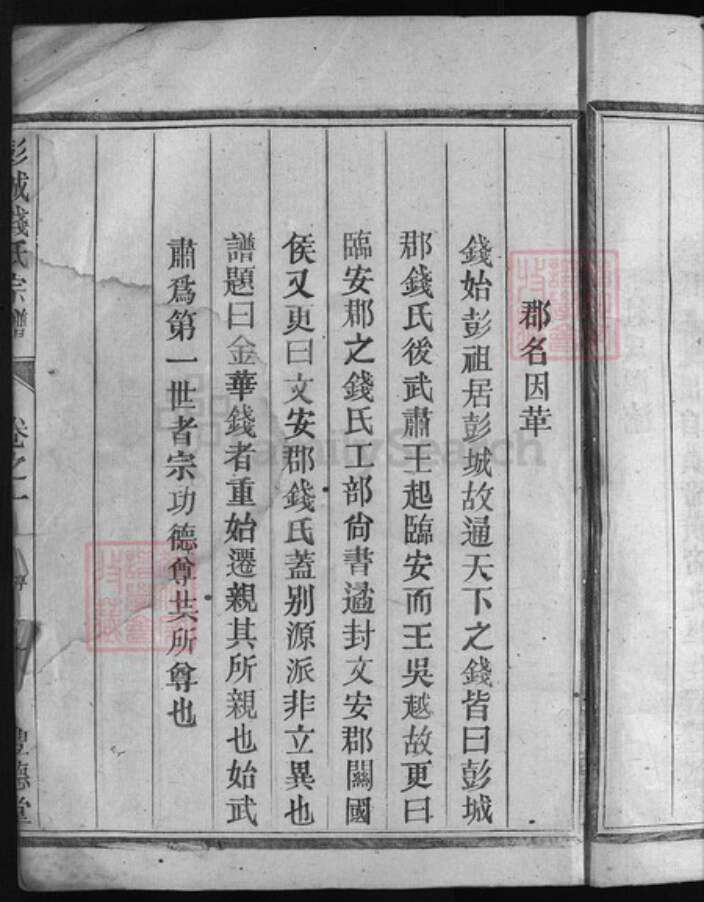 郡名因革
錢始彭祖居彭城故通天下之錢皆曰彭城
郡錢氏後武肅王起臨安而王吳越故更曰
臨安郡之錢氏工部尙書遹封文安郡開國
侯又更曰文安郡錢氏蓋別源派非立異也
譜題曰金華錢者重始遷親其所親也始武
肅爲第一世者宗功德尊其所尊也
彭城錢氏宗譜
卷之一
豐德堂
FamilySearch